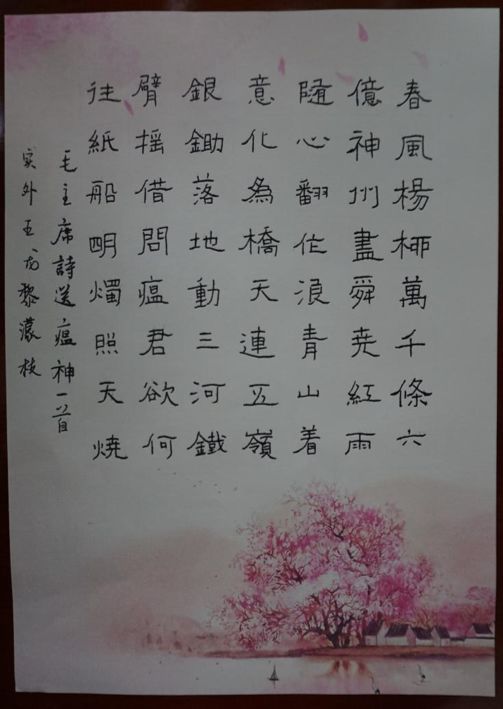 春風楊柳萬千條六
億神州盡舜尭紅雨
隨心翻作浪青山着
意化為橋天連五嶺
銀鋤落地動三河鐵
臂摇借問瘟君欲何
往紙船明燭照天燒
毛主席詩送瘟神一首
外五黎濛枝